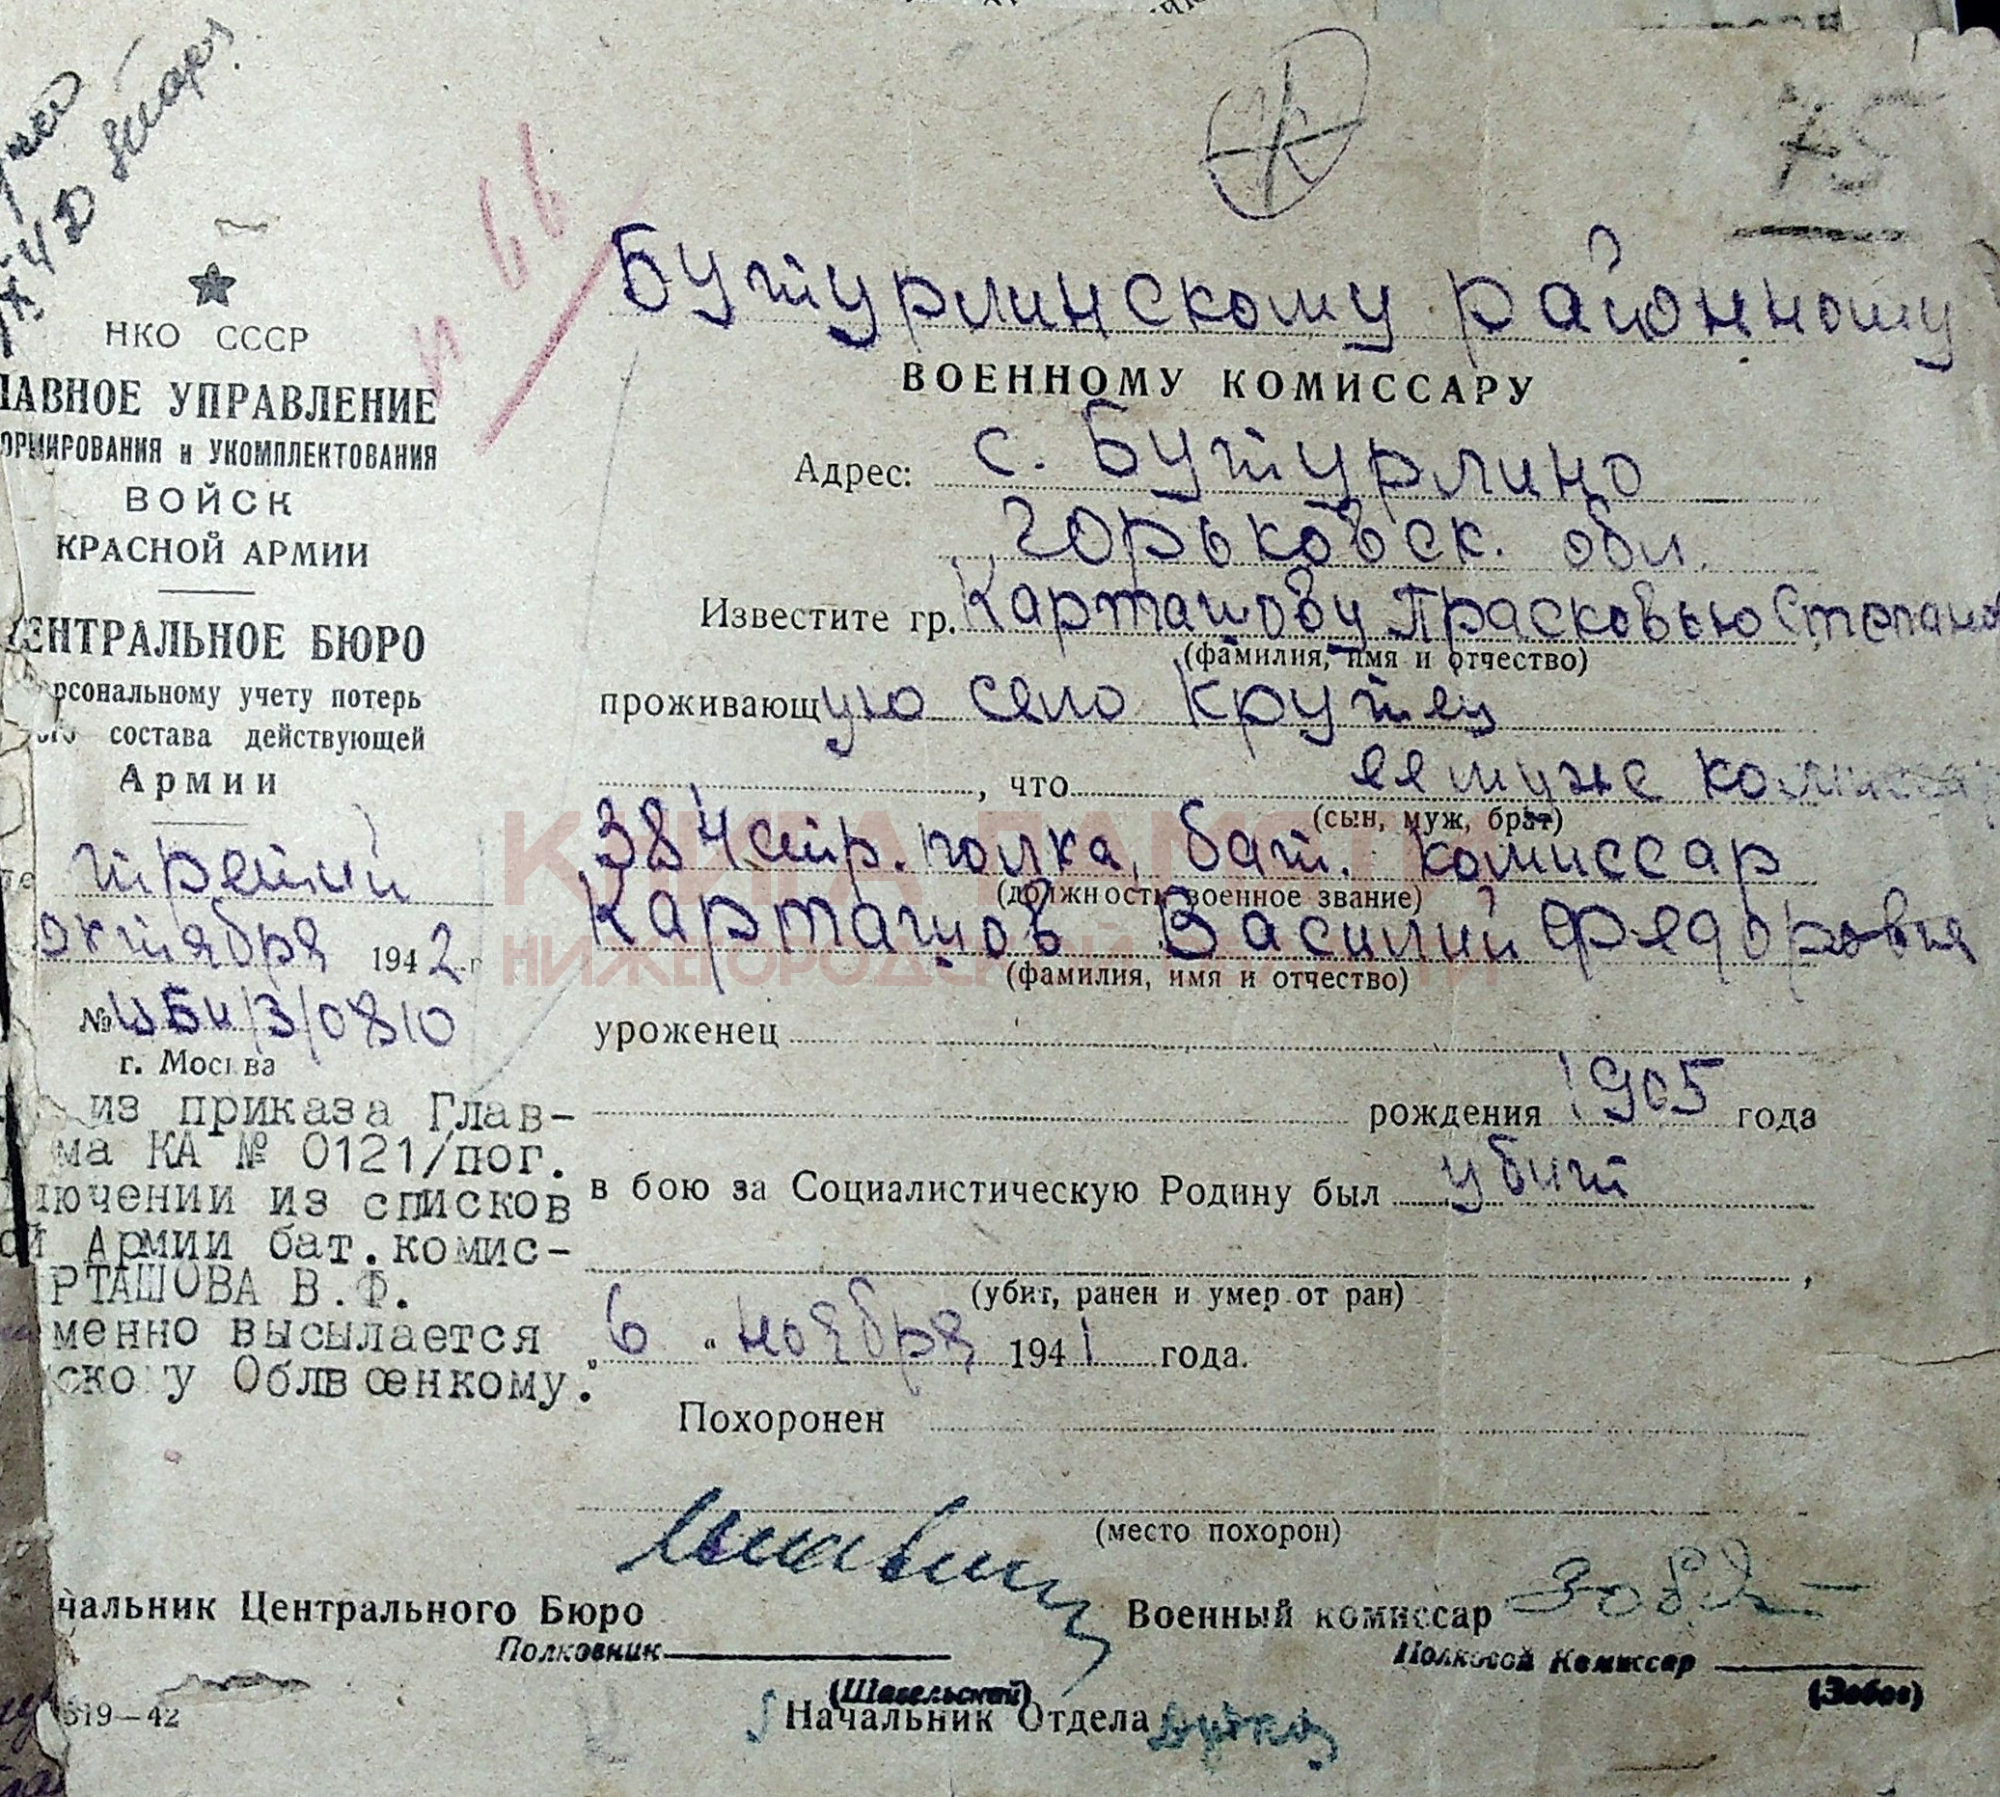 75
н 66
НКО СССР
ЛАВНОЕ УПРАВЛЕНИЕ
ОРМИРОВАНИЯ и УКОМПЛЕКТОВАНИЯ
ВОЙСК
КРАСНОЙ АРМИИ
ЕНТРАЛЬНОЕ БЮРО
рсональному учету потерь
ого состава действующей
Армии
третий
октября 1942 г
№
0810
г. Москва
из приказа Глав-
ма КА № 0121/пог.
лючении из списков
ой Армии бат.комис-
РТАШОВА В.Ф.
менно высылается
ско у Облвоенкому.
Бутурлинскому районному
ВОЕННОМУ КОМИССАРУ
Адрес: с. Бутурлино
Горьковск. обл.
Известите гр. Карташову Прасковью Степанов
(фамилия, имя и отчество)
проживающую село Крутец
, что ее муж комиссар
(сын, муж, брат)
384 стр. полка, бат. комиссар
(должность военное звание)
Карташов Василий Федорович
(фамилия, имя и отчество)
уроженец
рождения 1905 года
в бою за Социалистическую Родину был убит
,
(убит, ранен и умер от ран)
„ 6 “ ноября 1941 года.
Похоронен
(место похорон)
чальник Центрального Бюро
Полковник
(Шавельский)
Военный комиссар
Полковой Комиссар
(Зобов)
Начальник Отдела
519—42
КНИГА ПАМЯТИ
НИЖЕГОРОДСКОЙ ОБЛАСТИ